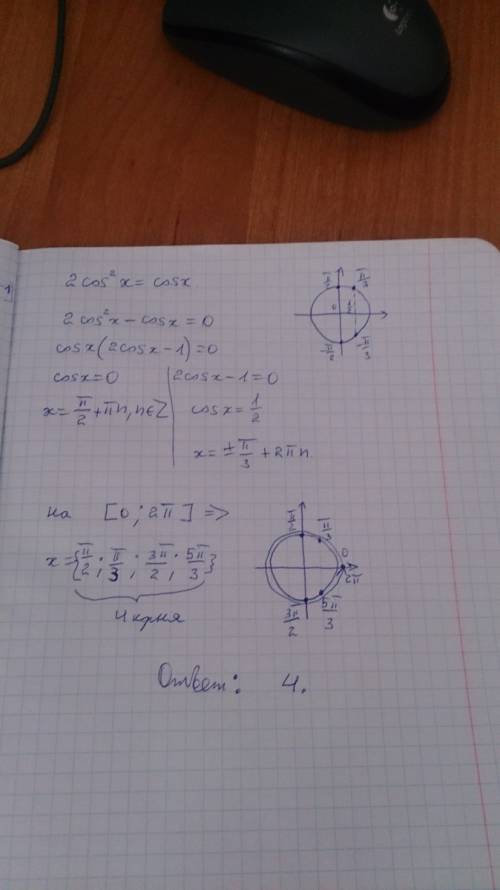 1
2cos²x = cosx
2cos²x - cosx = 0
cosx(2cosx - 1) = 0
cosx = 0 | 2cosx - 1 = 0
x = π/2 + πn, n∈Z | cosx = 1/2
x = ± π/3 + 2πn
π/2 π/3
0 1/2
-π/2 -π/3
на [0; 2π] =>
x = {π/2; π/3; 3π/2; 5π/3}
4 корня
π/2 π/3
0
2π
3π/2 5π/3
Ответ: 4.